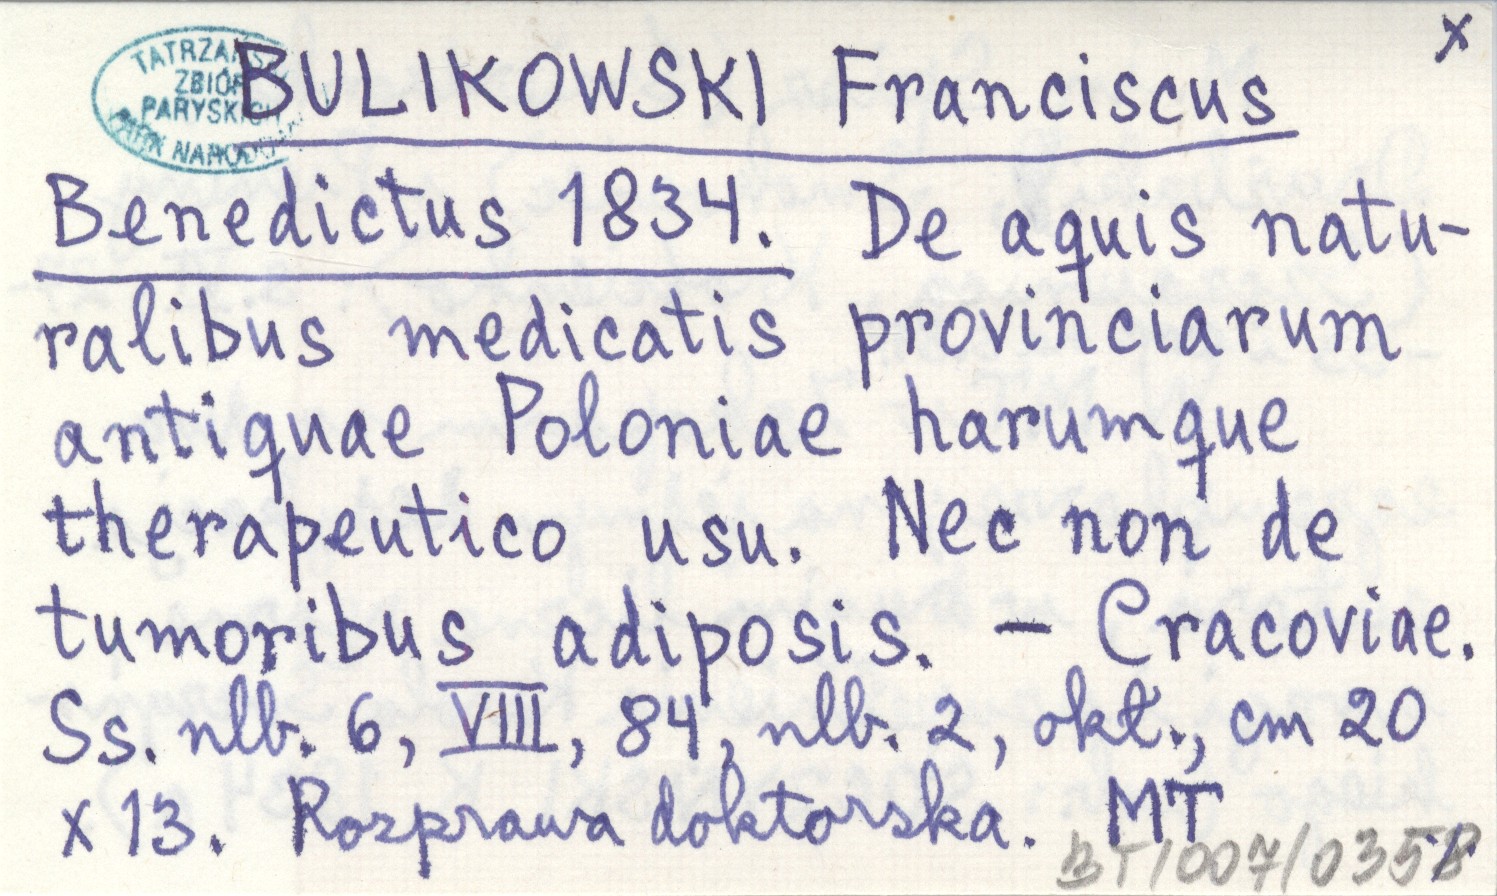 x
TATRZAŃSKIE
ZBIÓR
PARYSKICH
PARK NARODOWY
BULIKOWSKI Franciscus
Benedictus 1834. De aquis natu-
ralibus medicatis provinciarum
antiquae Poloniae harumque
therapeutico usu. Nec non de
tumoribus adiposis. – Cracoviae.
Ss. nlb. 6, VIII, 84, nlb. 2, okł., cm 20
x 13. Rozprawa doktorska. MT
BT/007/0358